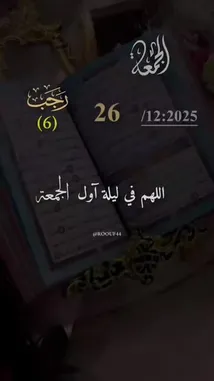 الجمعة
رجب
26 /12:2025
(6)
اللهم في ليلة آول الجمعة
@ROOUF44